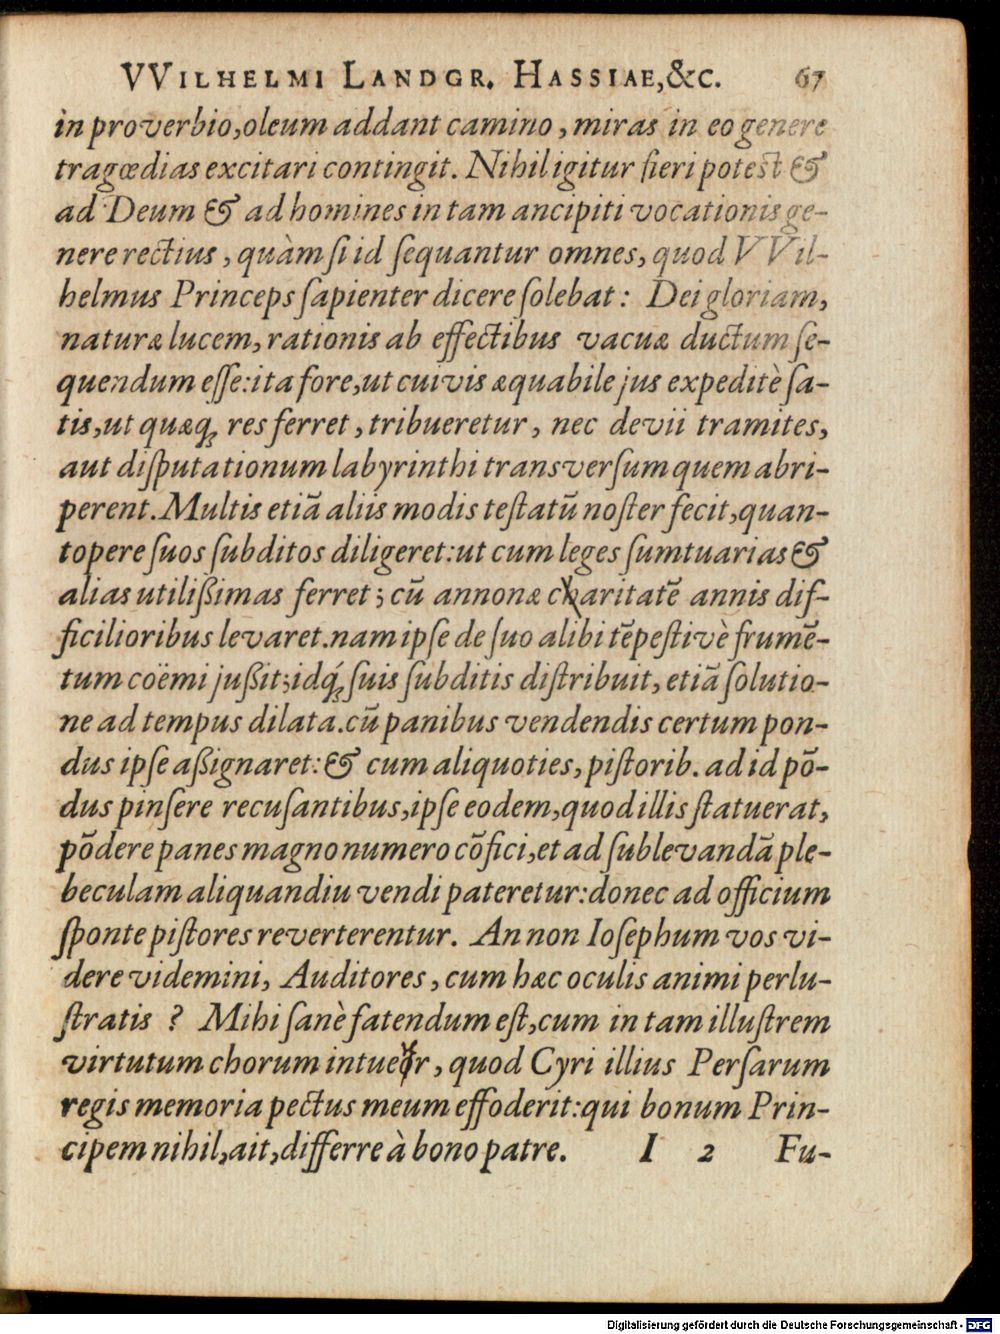 VVILHELMI LANDGR. HASSIAE,&C. 67
in proverbio,oleum addant camino, miras in eo genere
tragœdias excitari contingit. Nihil igitur ſieri potest &
ad Deum & ad homines in tam ancipiti vocationis ge-
nere rectius, quàm ſi id ſequantur omnes, quod VVil-
helmus Princeps ſapienter dicere ſolebat: Dei gloriam,
naturæ lucem, rationis ab effectibus vacuæ ductum ſe-
quendum eſſe:ita fore,ut cuivis æquabile jus expeditè ſa-
tis,ut quæq; res ferret, tribueretur, nec devii tramites,
aut diſputationum labyrinthi transverſum quem abri-
perent. Multis etiã aliis modis teſtatũ noſter fecit,quan-
topere ſuos ſubditos diligeret:ut cum leges ſumtuarias &
alias utilißimas ferret; cũ annonæ charitatẽ annis dif-
ficilioribus levaret.nam ipſe de ſuo alibi tẽpeſtivè frumẽ-
tum coëmi jußit;idq́; ſuis ſubditis diſtribuit, etiã ſolutio-
ne ad tempus dilata.cũ panibus vendendis certum pon-
dus ipſe aßignaret:& cum aliquoties, piſtorib. ad id põ-
dus pinſere recuſantibus,ipſe eodem,quod illis ſtatuerat,
põdere panes magno numero cõfici,et ad ſublevandã ple-
beculam aliquandiu vendi pateretur:donec ad officium
ſponte piſtores reverterentur. An non Ioſephum vos vi-
dere videmini, Auditores, cum hæc oculis animi perlu-
ſtratis ? Mihi ſanè fatendum eſt,cum in tam illuſtrem
virtutum chorum intueor, quod Cyri illius Perſarum
regis memoria pectus meum effoderit:qui bonum Prin-
cipem nihil,ait,differre à bono patre. I 2 Fu-
Digitalisierung gefördert durch die Deutsche Forschungsgemeinschaft - DFG